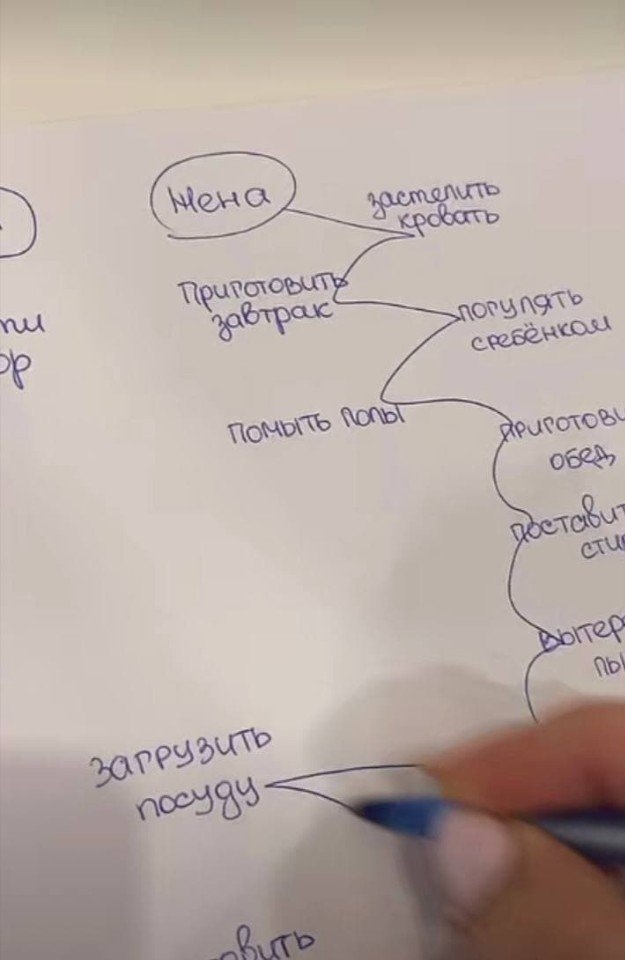 Жена
застелить
кровать
Приготовить
завтрак
погулять
сребёнком
помыть полы
приготови
обед
поставит
сти
вытер
пы
загрузить
посуду
овить